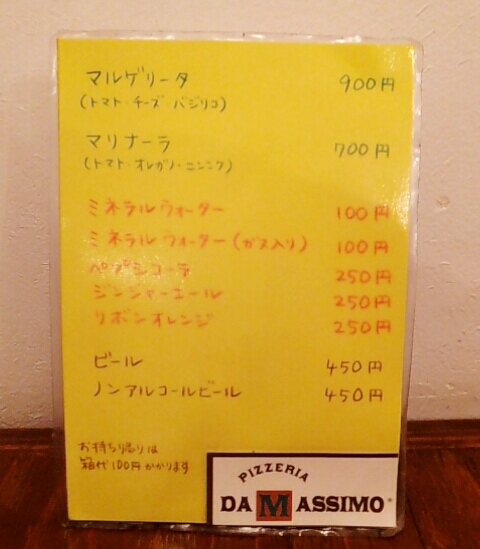 マルゲリータ 900円
(トマト・チーズ・バジリコ)
マリナーラ 700円
(トマト・オレガノ・ニンニク)
ミネラルウォーター 100円
ミネラルウォーター(ガス入り) 100円
ペプシコーラ 250円
ジンジャーエール 250円
リボンオレンジ 250円
ビール 450円
ノンアルコールビール 450円
お持ち帰りは
箱代100円かかります
PIZZERIA
DA MASSIMO